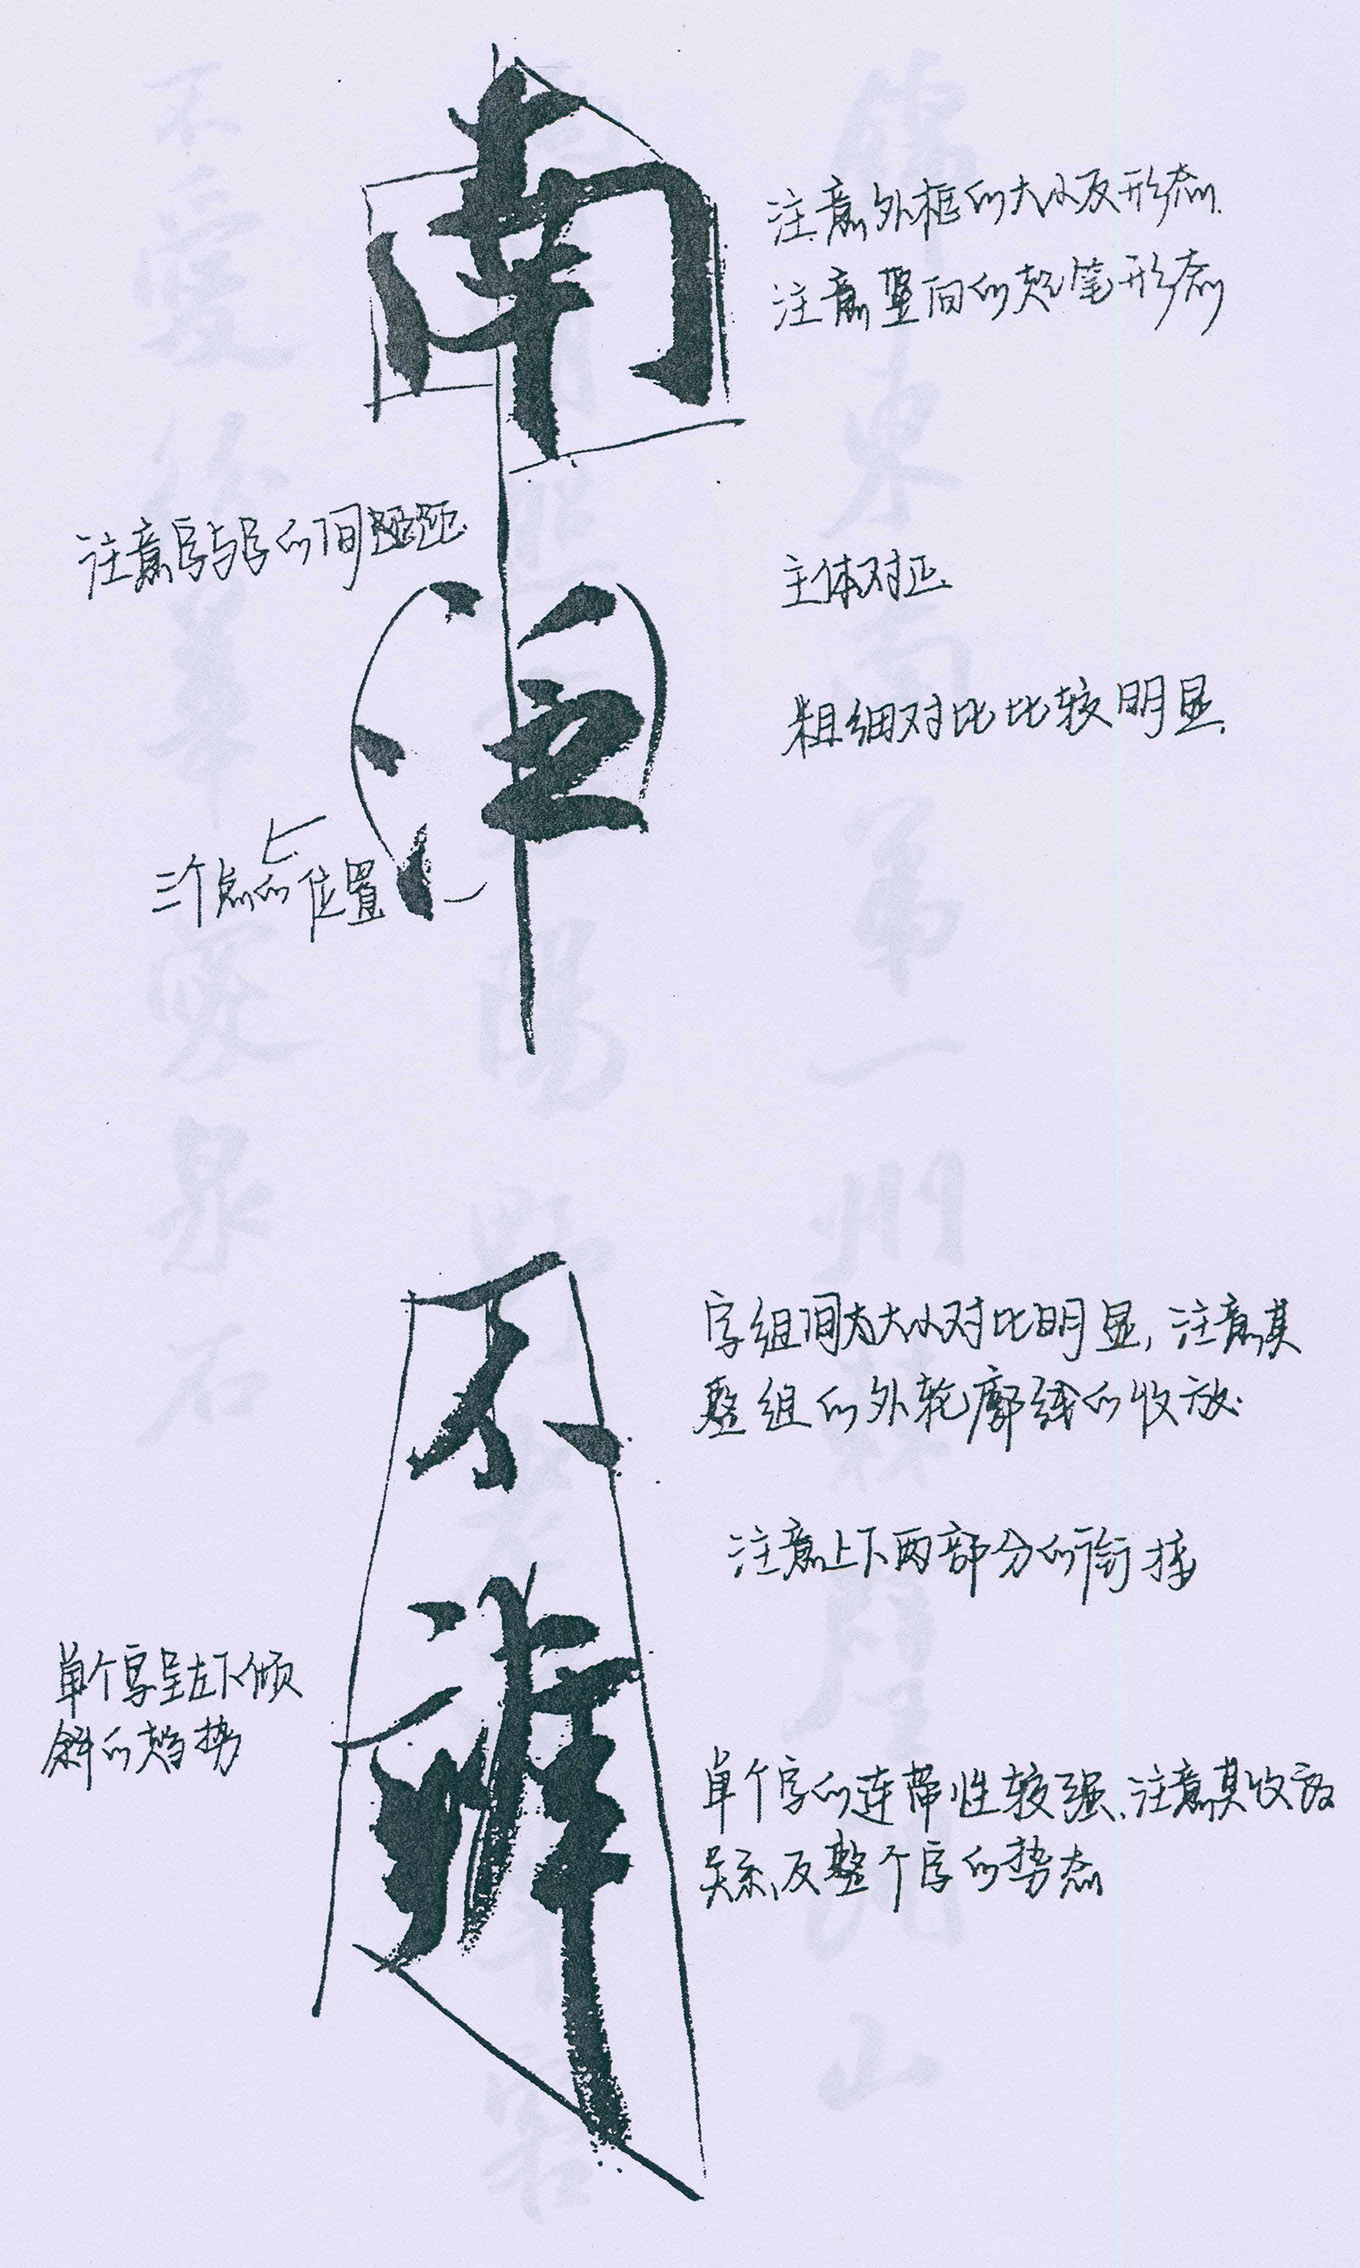 南
注意外框的大小及形态.
注意竖向的起笔形态
注意字与字的间距
主体对正
粗细对比比较明显.
三个点的位置
不
辨
字组间大小对比明显,注意其
整组的外轮廓线的收放.
注意上下两部分的衔接
单个字呈左下倾
斜的趋势
单个字的连带性较强,注意其收放
关系及整个字的势态
東南第一州
山
愛泉石